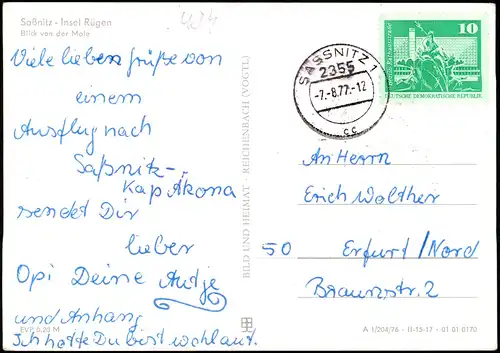 Saßnitz - Insel Rügen
Blick von der Mole
Viele lieben Grüße von
einem
Ausflug nach
Saßnitz -
Kap Akona
sendet Dir
lieber
Opi Deine Antje
und Anhang
Ich hoffe Du bist wohlauf.
EVP 0,20 M
BILD UND HEIMAT REICHENBACH (VOGTL)
SASSNITZ 1
2355
-7.-8.77.-12
cc
10
DEUTSCHE DEMOKRATISCHE REPUBLIK
An Herrn
Erich Walther
50 Erfurt/Nord
Braunstr. 2
A 1/204/76 - II-15-17 - 01 01 0170